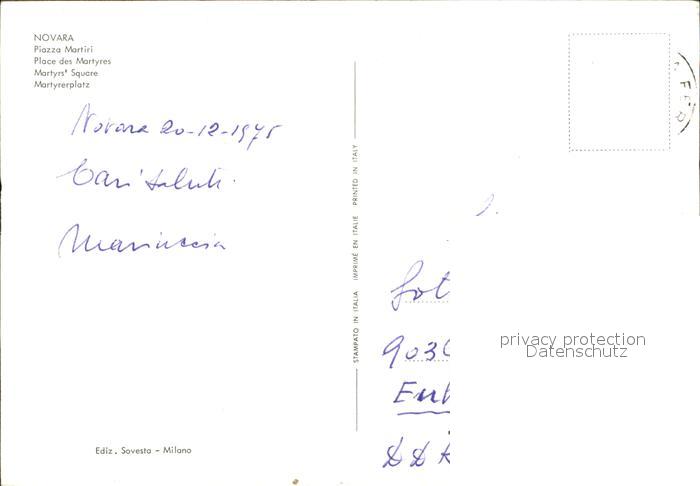 NOVARA
Piazza Martiri
Place des Martyres
Martyrs' Square
Martyrerplatz
Novara 20-12-1975
Cari saluti.
Mariuccia
Ediz. Sovesta - Milano
STAMPATO IN ITALIA IMPRIMÉ EN ITALIE PRINTED IN ITALY
FER
903
DDR
privacy protection
Datenschutz